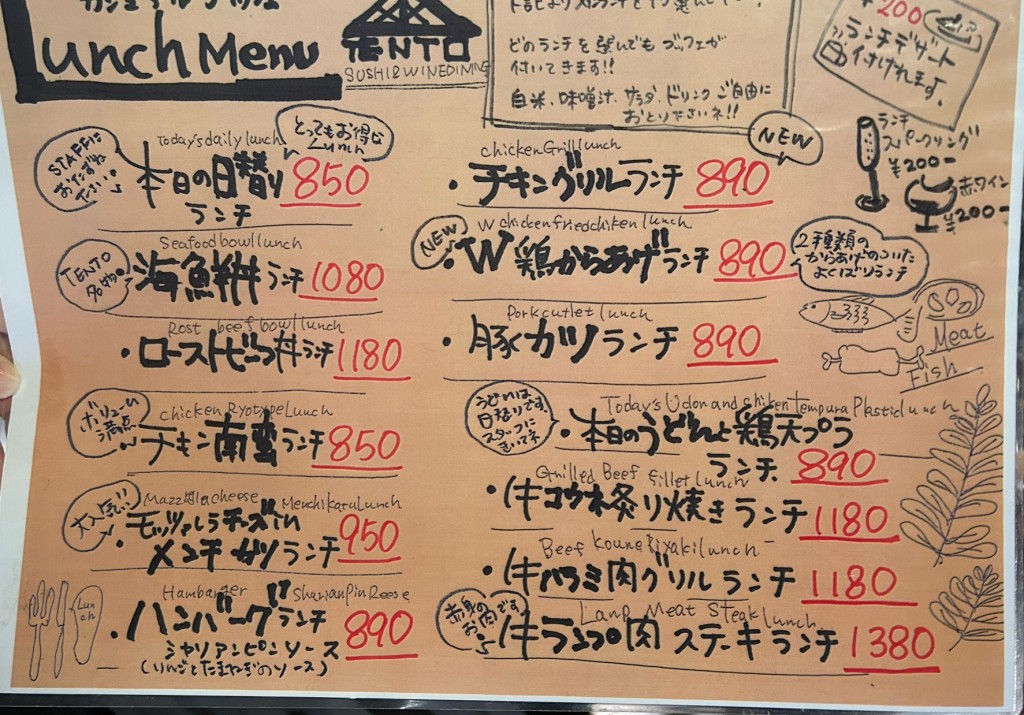 Lunch Menu
TENTO
SUSHI&WINEDINING
どのランチを選んでも ブッフェが
付いてきます!!
白米、味噌汁、サラダ、ドリンク ご自由に
おとり下さいネ!!
¥200
ランチデザート
付けれます。
ランチ
スパークリング
¥200-
赤ワイン
¥200-
STAFFに
おたずね
下さい♪
Today's daily lunch
とってもお得な
Lunch
本日の日替り 850
ランチ
TENTO
名物。
Seafood bowl lunch
海鮮丼ランチ 1080
Rost beef bowl lunch
・ローストビーフ丼ランチ 1180
ボリューム
満点
chicken Ryotype Lunch
・チキン南蛮ランチ 850
大人気!!
Menchi Katsu Lunch
・モッツァレラチーズin
メンチカツランチ 950
Hambarger
・ハンバーグランチ 890
シャリアンピンソース
(りんごとたまねぎのソース)
Lunch
NEW
chicken Grill lunch
・チキングリルランチ 890
NEW
W chicken fried chiken lunch
・W鶏からあげランチ 890
2種類の
からあげのついた
よくばりランチ
Pork cutlet lunch
・豚カツランチ 890
Meat
Fish
うどんは
日替りです。
スタッフに
きいてネ
Today's Udon and shiken tempura Plastic lunch
・本日のうどんと鶏天プラ
ランチ 890
Grilled Beef fillet lunch
・牛コウネ炙り焼きランチ 1180
Beef Koune Riyaki lunch
・牛バラミ肉グリルランチ 1180
赤身の
お肉です。
Lanp Meat Steak lunch
・牛ランプ肉ステーキランチ 1380